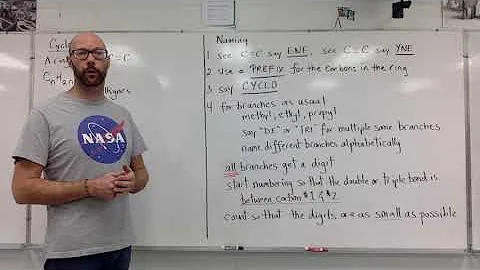 Cycl
A C=C
CnH2n lkynes
NASA
Naming
1 see C=C say ENE, see C≡C say YNE
2 use a PREFIX for the carbons in the ring
3 say CYCLO
4 for branches as usual
methyl, ethyl, propyl
say "DI" or "TRI" for multiple same branches
name different branches alphabetically
all branches get a digit
start numbering so that the double or triple bond is
between carbon #1 & #2
count so that the digits are as small as possible